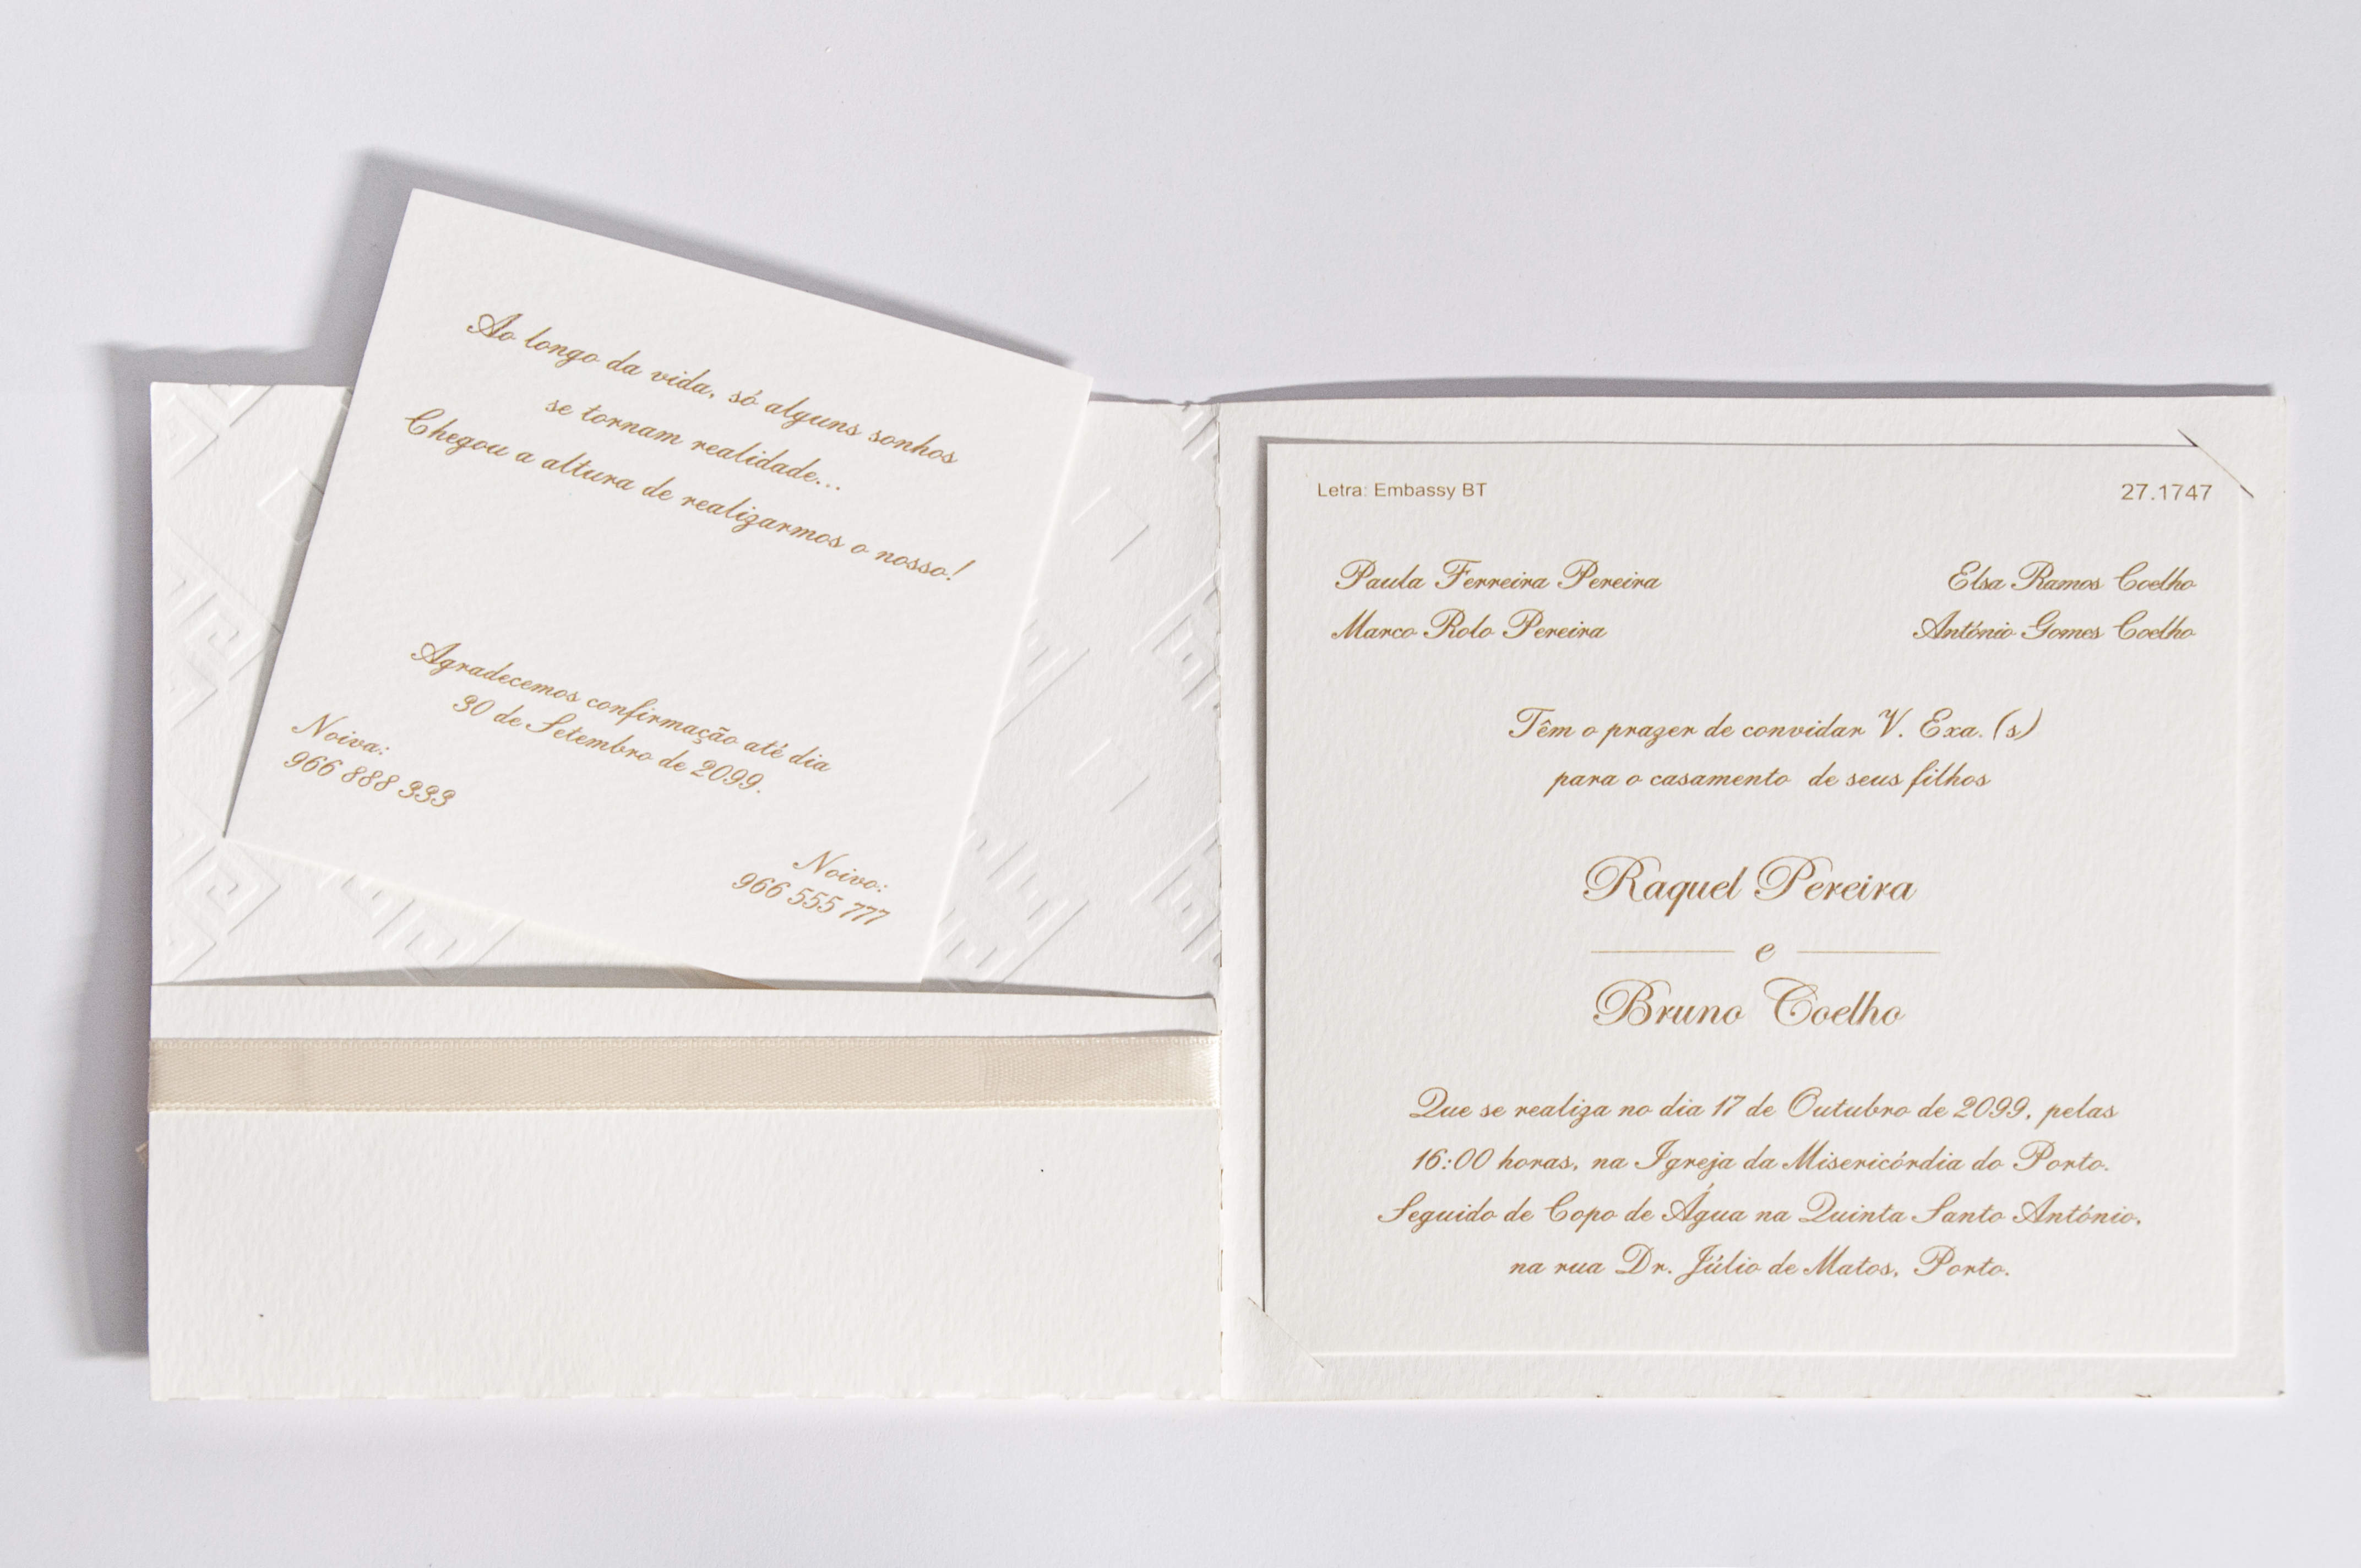 Ao longo da vida, só alguns sonhos
se tornam realidade...
Chegou a altura de realizarmos o nosso!
Agradecemos confirmação até dia
30 de Setembro de 2099.
Noiva:
966 888 333
Noivo:
966 555 777
Letra: Embassy BT
27.1747
Paula Ferreira Pereira
Marco Rolo Pereira
Elsa Ramos Coelho
António Gomes Coelho
Têm o prazer de convidar V. Exa.(s)
para o casamento de seus filhos
Raquel Pereira
e
Bruno Coelho
Que se realiza no dia 17 de Outubro de 2099, pelas
16:00 horas, na Igreja da Misericórdia do Porto.
Seguido de Copo de Água na Quinta Santo António,
na rua Dr. Júlio de Matos, Porto.